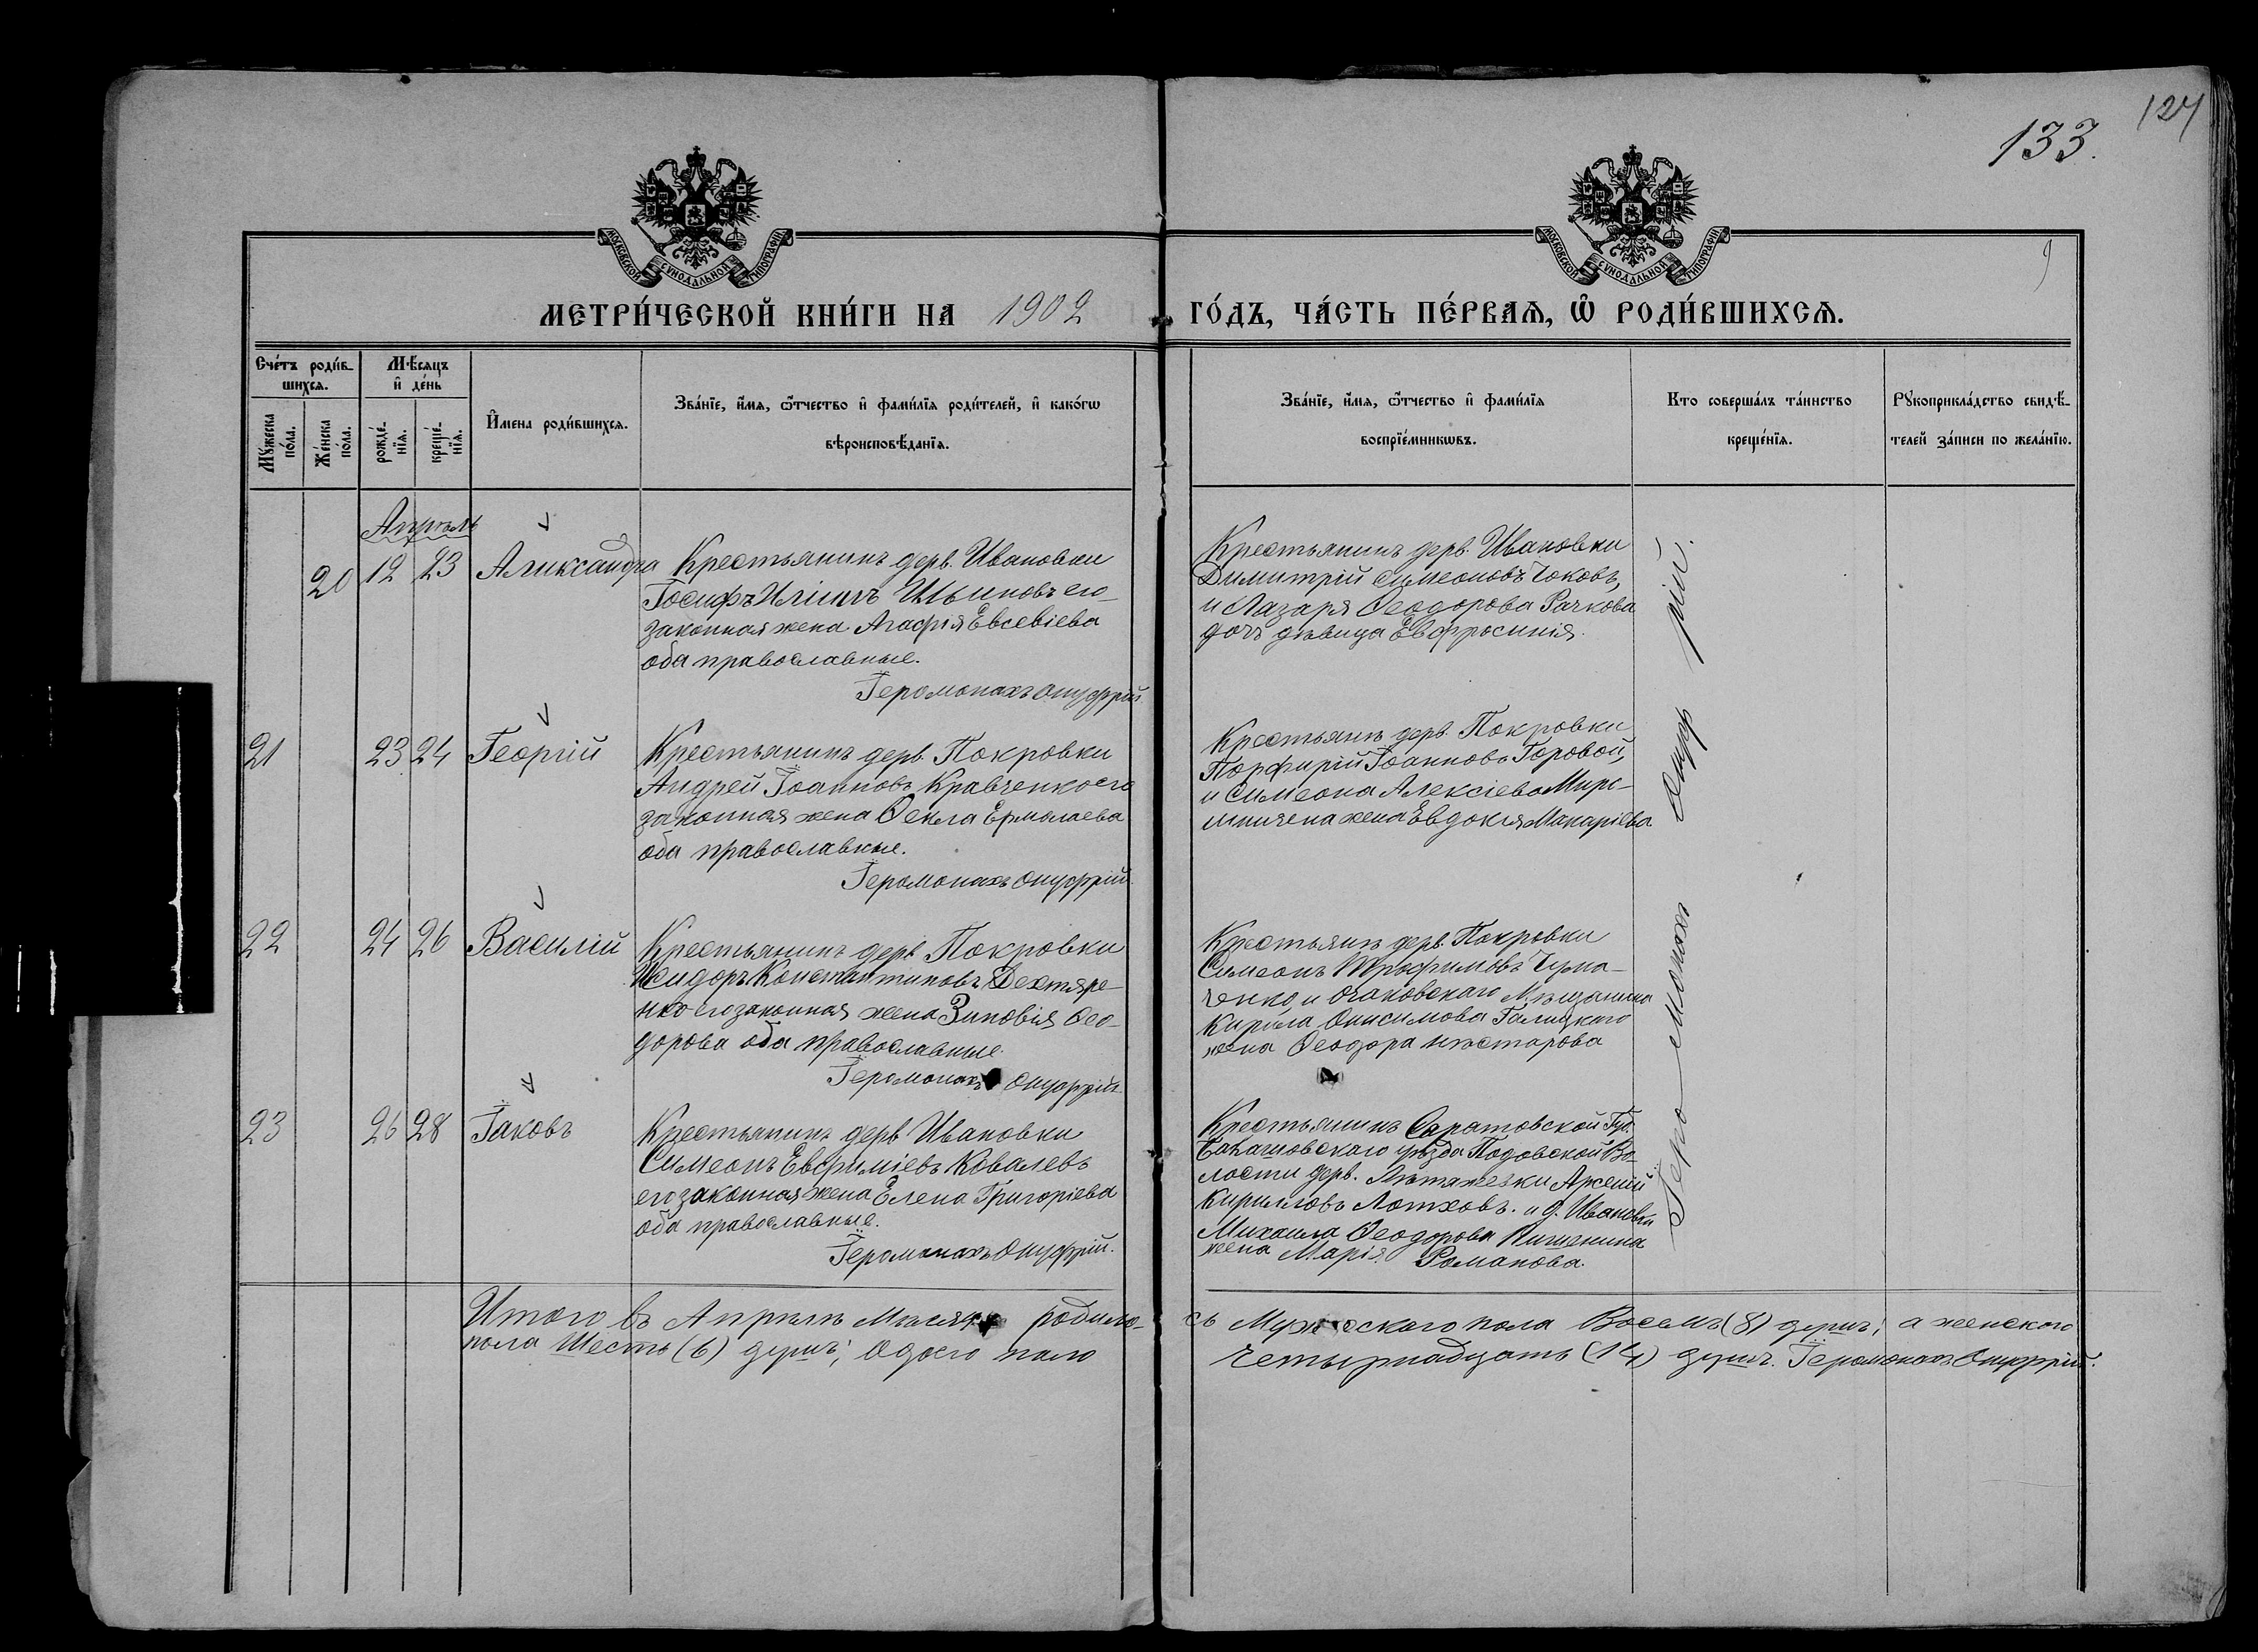 127
133.
МОСКОВСКОЙ СѴНОДАЛЬНОЙ ТИПОГРАФІИ
МОСКОВСКОЙ СѴНОДАЛЬНОЙ ТИПОГРАФІИ
МЕТРИ́ЧЕСКОЙ КНИ́ГИ НА 1902 ГО́ДЪ, ЧА́СТЬ ПЕ́РВАѦ, Ѡ҆ РОДИ́ВШИХСѦ.
Сче́тъ роди́в-
шихсѧ.
Мꙋ́жеска по́ла.
Же́нска по́ла.
Мѣ́сѧцъ и҆ де́нь
рожде́-
нїѧ.
креще́-
нїѧ.
И҆мена роди́вшихсѧ.
Зва́нїе, и҆́мѧ, ѻ҆́тчество и҆ фами́лїѧ роди́телей, и҆ како́гѡ
вѣроисповѣ́данїѧ.
Зва́нїе, и҆́мѧ, ѻ҆́тчество и҆ фами́лїѧ
воспрїе́мникѡвъ.
Кто соверша́лъ та́инство
креще́нїѧ.
Рꙋкоприкла́дство свидѣ́-
телей за́писи по жела́нїю.
Апрѣль
20 12 23 Александра
Крестьянинъ дерв. Ивановки
Іосифъ Иліинъ его
законная жена Агафія Евсевіева
оба православные.
Іеромонахъ Онуфрій
Крестьянинъ дерв. Ивановки
Димитрій Симеоновъ
и Лазаря Ѳеодорова Рачкова
дочь дѣвица Евфросинія.
21 23 24 Георгій
Крестьянинъ дерв. Покровки
Андрей Іоанновъ Кравченко его
законная жена Ѳекла Ермолаева
оба православные.
Іеромонахъ Онуфрій.
Крестьянъ дерв. Покровки
Порфирій Іоанновъ Горовой,
и Симеона Алексіева
жена Евдокія Макаріева
22 24 26 Василій
Крестьянинъ дерв Покровки
Исидоръ Константиновъ Дехтяре-
нко его законная жена Зиновія Ѳео-
дорова оба православные.
Іеромонахъ Онуфрій
Крестьянъ дерв. Покровки
Симеонъ Трофимовъ Чума-
ченко и Очаковскаго Мѣщанина
Кирила Онисимова Галицкаго
жена Ѳеодора
23 26 28 Іаковъ
Крестьянинъ дерв Ивановки
Симеонъ Евфиміевъ Ковалевъ
его законная жена Елена Григоріева
оба православные.
Іеромонахъ Онуфрій.
Крестьянинъ Саратовской Губ.
уѣзда Во-
лости дерв. Арсеній
Кирилловъ и д. Ивановки
Михаила Ѳеодорова
жена Марія Романова.
Іеромонахъ Онуфрій.
Итого въ Апрѣлѣ Мѣсяцѣ родило-сь Мужескаго пола Восемь (8) душъ; а женскаго
пола Шесть (6) душъ; Обоего пола Четырнадцать (14) душъ. Іеромонахъ Онуфрій.